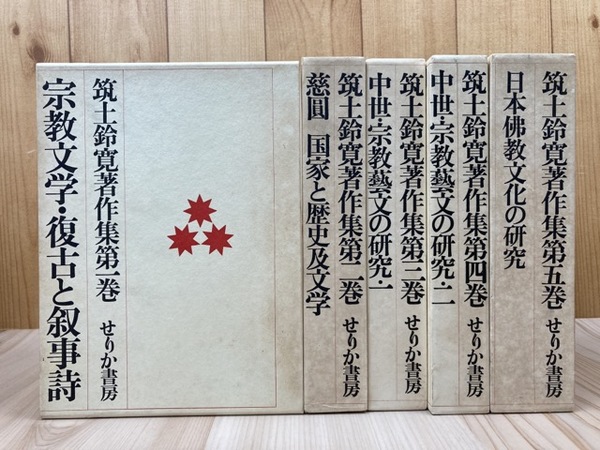 宗教文学・復古と叙事詩
筑土鈴寛著作集第一巻
せりか書房
筑土鈴寛著作集第二巻
慈圓 国家と歴史及文学
せりか書房
筑土鈴寛著作集第三巻
中世・宗教藝文の研究・一
せりか書房
筑土鈴寛著作集第四巻
中世・宗教藝文の研究・二
せりか書房
筑土鈴寛著作集第五巻
日本佛教文化の研究
せりか書房